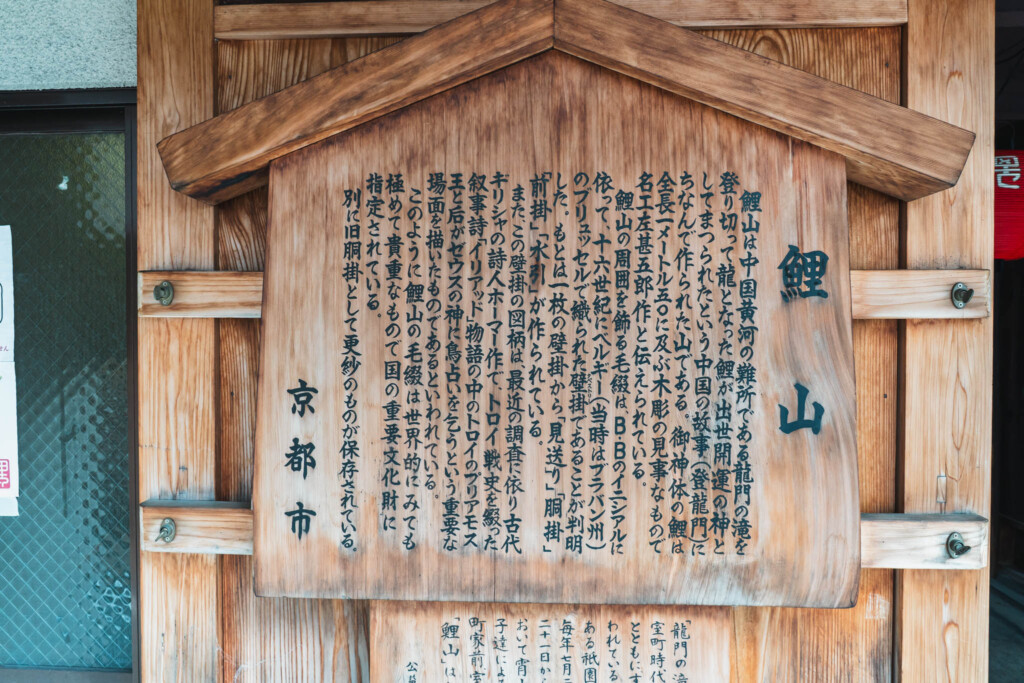 鯉山
鯉山は中国黄河の難所である龍門の滝を
登り切って龍となった鯉が出世開運の神と
してまつられたという中国の故事(登龍門)に
ちなんで作られた山である。御神体の鯉は
全長一メートル五〇に及ぶ木彫の見事なもので
名工左甚五郎作と伝えられている。
鯉山の周囲を飾る毛綴は、B・Bのイニシアルに
依って、十六世紀にベルギー(当時はブラバン州)
のブリュッセルで織られた壁掛であることが判明
した。もとは一枚の壁掛から「見送り」「胴掛」
「前掛」「水引」が作られている。
また、この壁掛の図柄は、最近の調査に依り古代
ギリシャの詩人ホーマー作で、トロイ戦史を綴った
叙事詩「イリアッド」物語の中のトロイのプリアモス
王と后がゼウスの神に鳥占いを乞うという重要な
場面を描いたものであるといわれている。
このように鯉山の毛綴は世界的にみても
極めて貴重なもので国の重要文化財に
指定されている。
別に旧胴掛として更紗のものが保存されている。
京都市
「龍門の
室町時代
とともにす
われている
ある祇園
毎年七月二
二十一日から
おいて宵
子達によ
町家前室
「鯉山」は